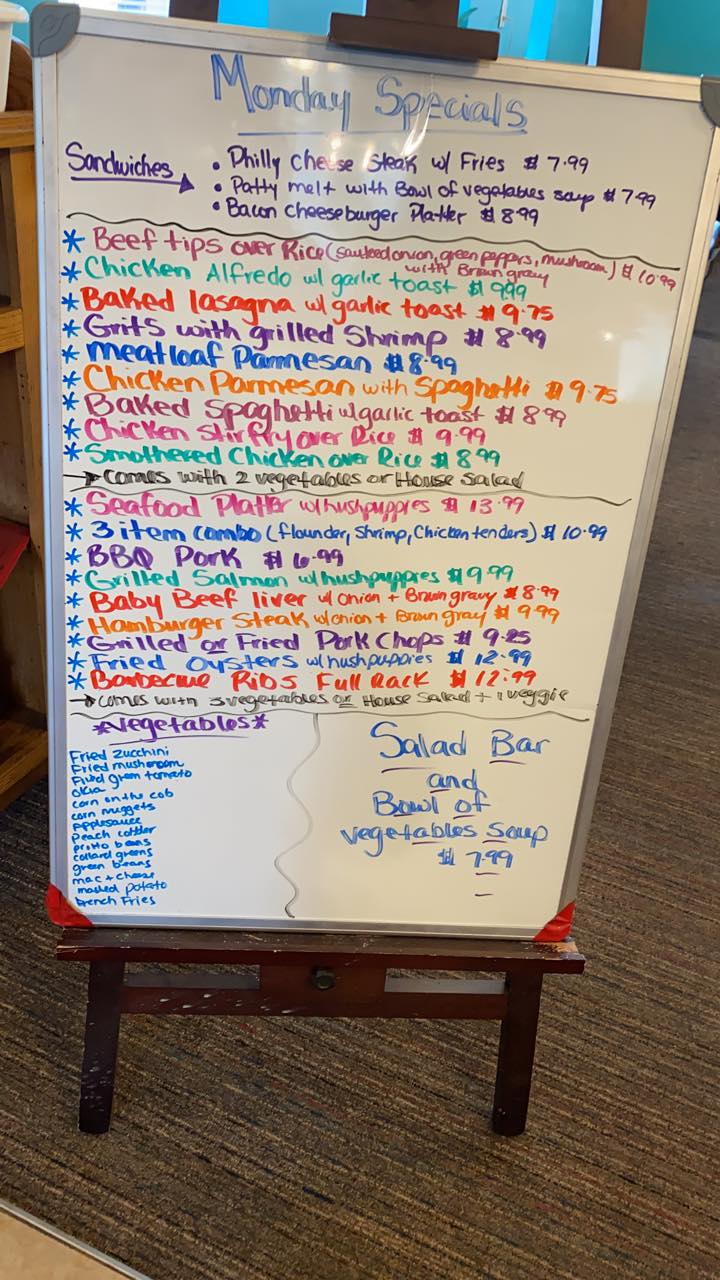 Monday Specials
Sandwiches
• Philly cheese steak w/ Fries $ 7.99
• Patty melt with Bowl of vegetables soup $ 7.99
• Bacon cheeseburger Platter $ 8.99
* Beef tips over Rice (sauteed onion, green peppers, mushroom) $ 10.99
with Brown gravy
* Chicken Alfredo w/ garlic toast $ 9.99
* Baked lasagna w/ garlic toast $ 9.75
* Grits with grilled Shrimp $ 8.99
* meatloaf Parmesan $ 8.99
* Chicken Parmesan with Spaghetti $ 9.75
* Baked Spaghetti w/ garlic toast $ 8.99
* Chicken Stir fry over Rice $ 9.99
* Smothered Chicken over Rice $ 8.99
→ comes with 2 vegetables or House Salad
* Seafood Platter w/ hushpuppies $ 13.99
* 3 item combo (flounder, Shrimp, Chicken tenders) $ 10.99
* BBQ Pork $ 6.99
* Grilled Salmon w/ hushpuppies $ 9.99
* Baby Beef liver w/ onion + Brown gravy $ 8.99
* Hamburger Steak w/ onion + Brown gray $ 9.99
* Grilled or Fried Pork Chops $ 9.25
* Fried Oysters w/ hushpuppies $ 12.99
* Barbecue Ribs Full Rack $ 12.99
→ comes with 3 vegetables or House Salad + 1 veggie
*Vegetables*
Fried zucchini
Fried mushroom
Fried green tomato
okra
corn on the cob
corn nuggets
applesauce
Peach cobbler
pinto beans
collard greens
green beans
mac + cheese
mashed potato
french Fries
Salad Bar
and
Bowl of
vegetables Soup
$ 7.99